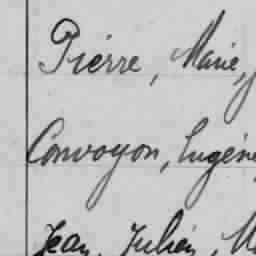 Pierre, Marie,
Convoyon, Eugène
Jean, Julien, M